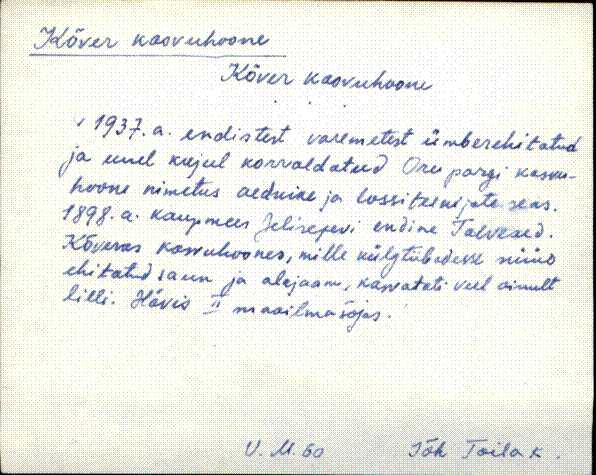 Kõver kasvuhoone
Kõver kasvuhoone
1937. a. endistest varemetest ümberehitatud
ja uuel kujul korraldatud Oru pargi kasvu-
hoone nimetus aednike ja lossiteenijate seas.
1898. a. kaupmees Jelissejevi endine Talveaed.
Kõveras kasvuhoones, mille külgtubadesse nüüd
ehitatud saun ja alajaam, kasvatati veel ainult
lilli. Hävis II maailmasõjas.
V. M. 60 Jõh Toila k.